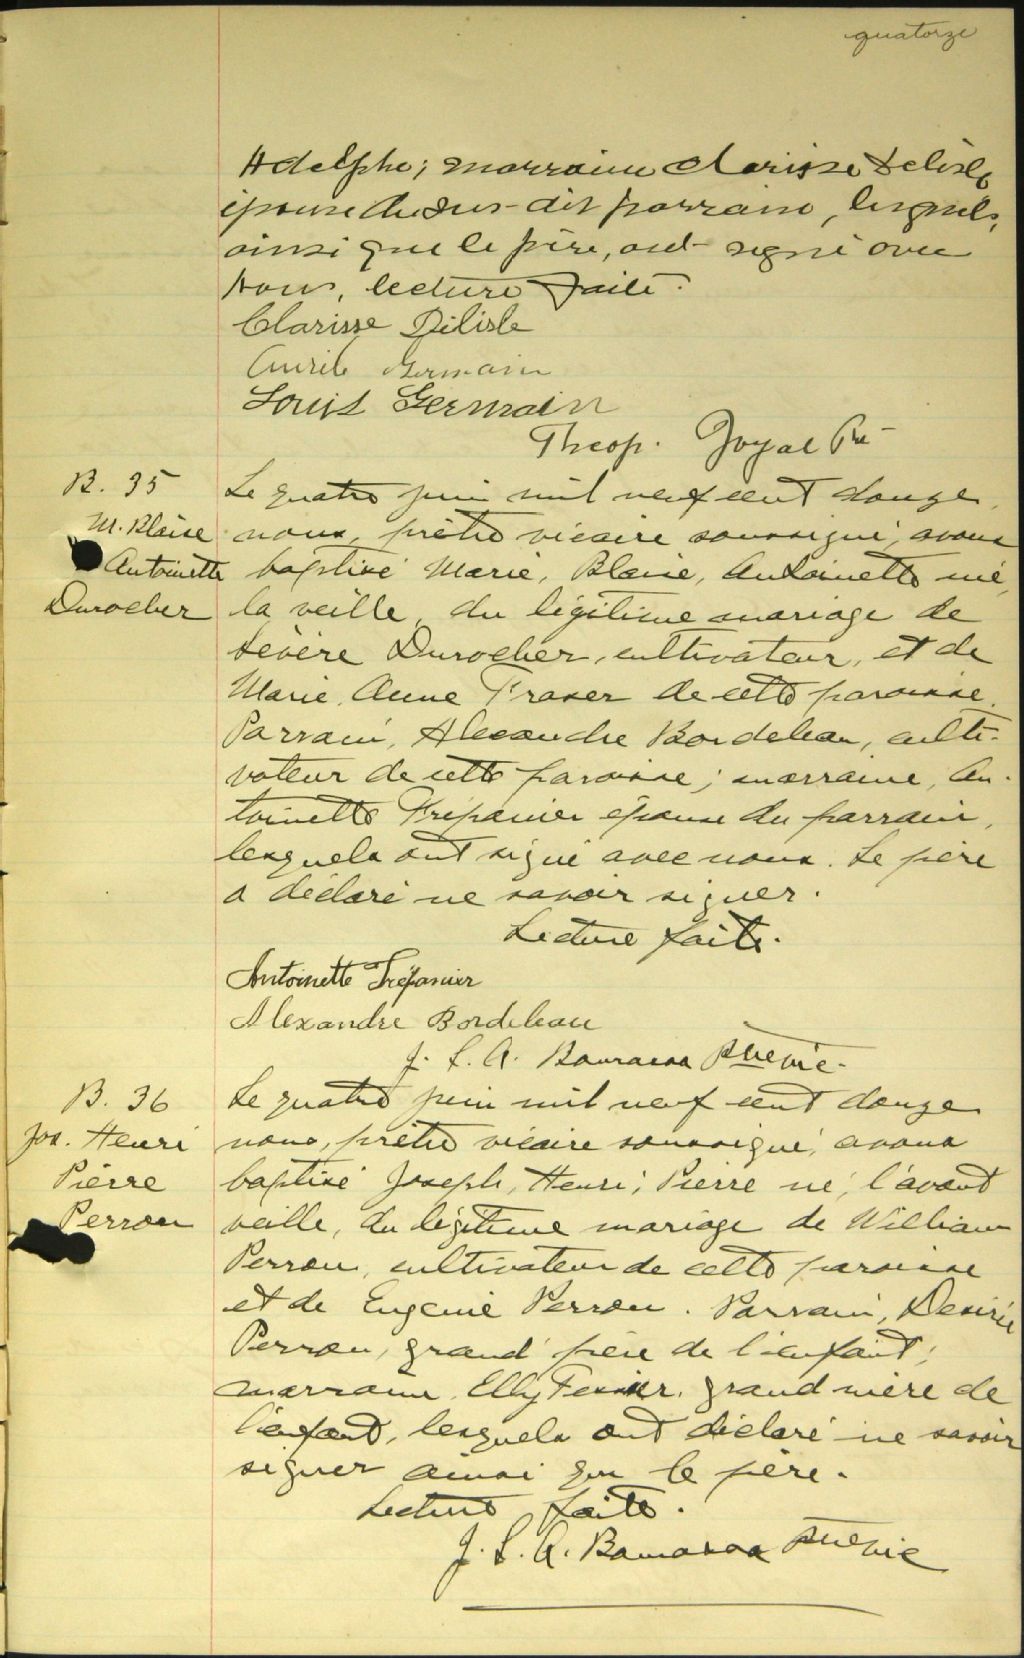 quatorze
Adelphe; marraine Clarisse Delisle
épouse du sus-dit parrain, lesquels,
ainsi que le père, ont signé avec
nous, lecture faite.
Clarisse Delisle
Germain
Louis Germain
Theop. Joyal Ptre
B. 35
M. Blaise
Antoinette
Durocher
Le quatre juin mil neuf cent douze
nous, prêtre vicaire soussigné, avons
baptisé Marie, Blaise, Antoinette née
la veille, du légitime mariage de
Sévère Durocher, cultivateur, et de
Marie Anne Fraser de cette paroisse.
Parrain, Alexandre Bordeleau, culti-
vateur de cette paroisse; marraine, An-
toinette Trépanier épouse du parrain,
lesquels ont signé avec nous. Le père
a déclaré ne savoir signer.
Lecture faite.
Antoinette Trépanier
Alexandre Bordeleau
J. L. A. Bourassa Ptre Vic.
B. 36
Jos. Henri
Pierre
Perron
Le quatre juin mil neuf cent douze
nous, prêtre vicaire soussigné, avons
baptisé Joseph, Henri, Pierre né, l'avant
veille, du légitime mariage de William
Perron, cultivateur de cette paroisse
et de Eugenie Perron. Parrain, Desiré
Perron, grand père de l'enfant;
marraine, Elly grand mère de
l'enfant, lesquels ont déclaré ne savoir
signer ainsi que le père.
Lecture faite.
J. L. A. Bourassa Ptre Vic